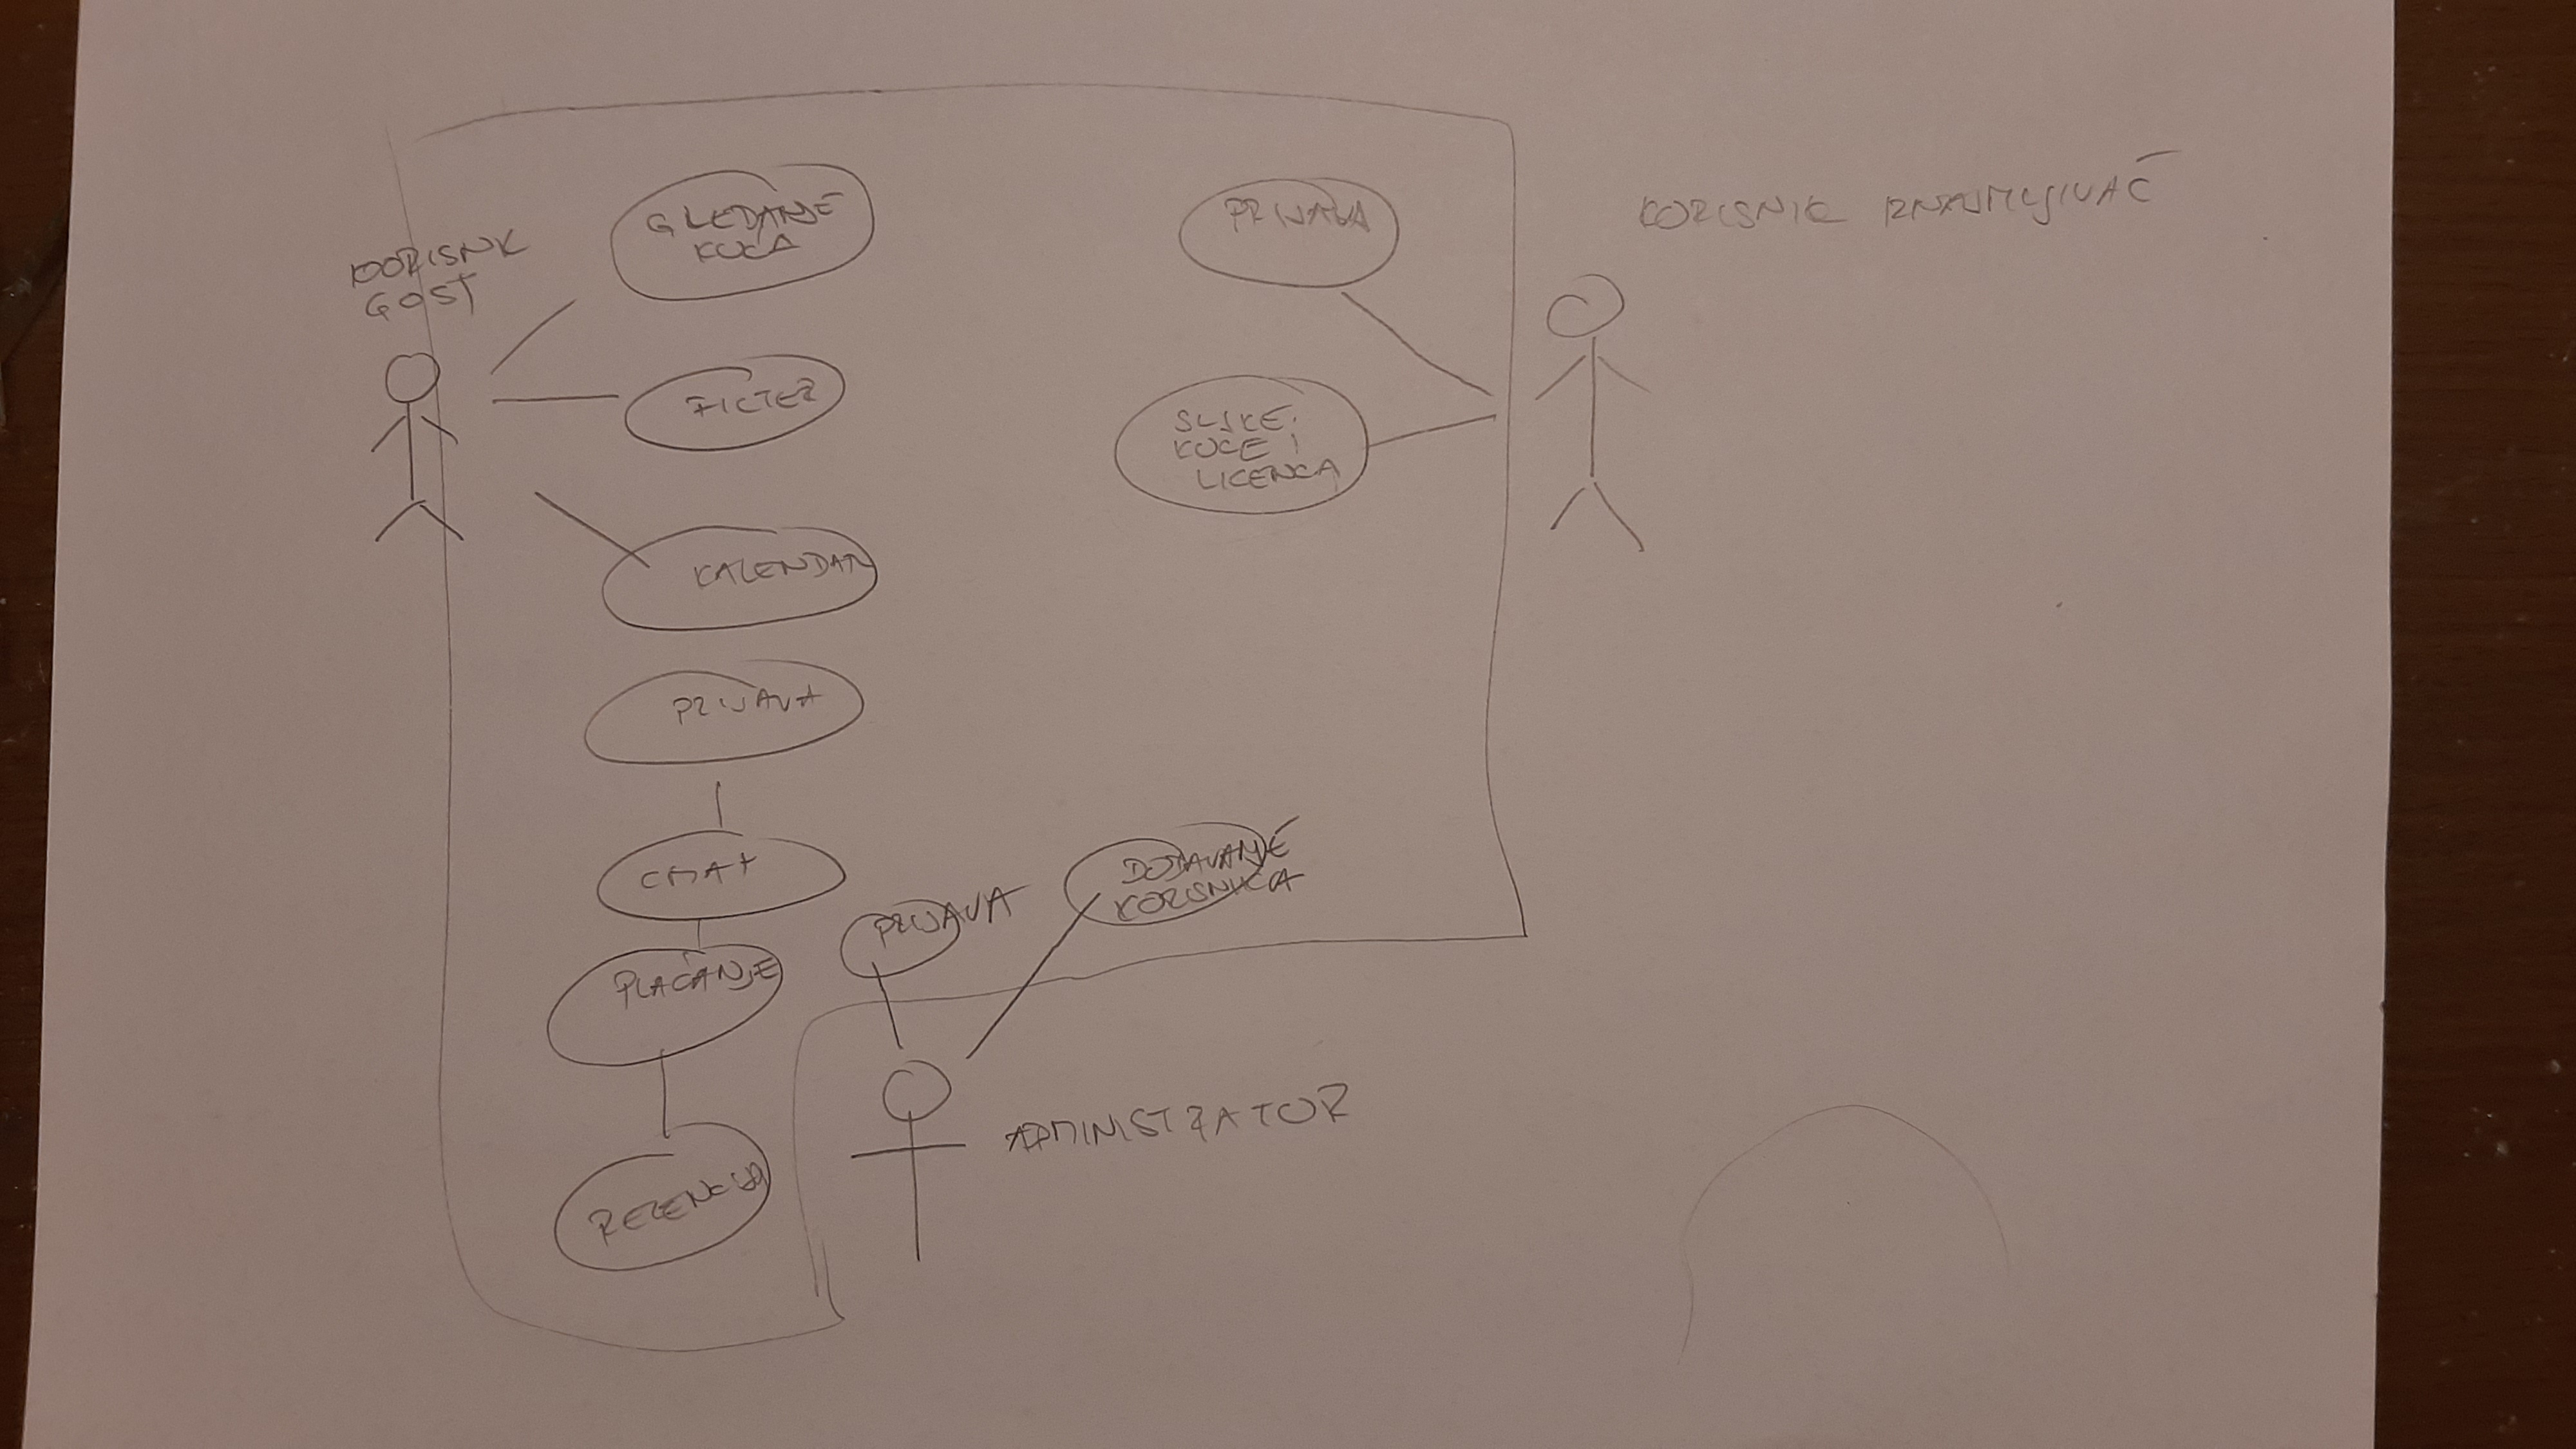 KORISNIK
GOST
GLEDANJE
KUCA
FILTER
KALENDAR
PRIJAVA
CHAT
PLAĆANJE
RECENCIJA
PRIJAVA
SLIKE
KUCE I
LICENCA
KORISNIK
PRIJAVA
KORISNIKA
ADMINISTRATOR